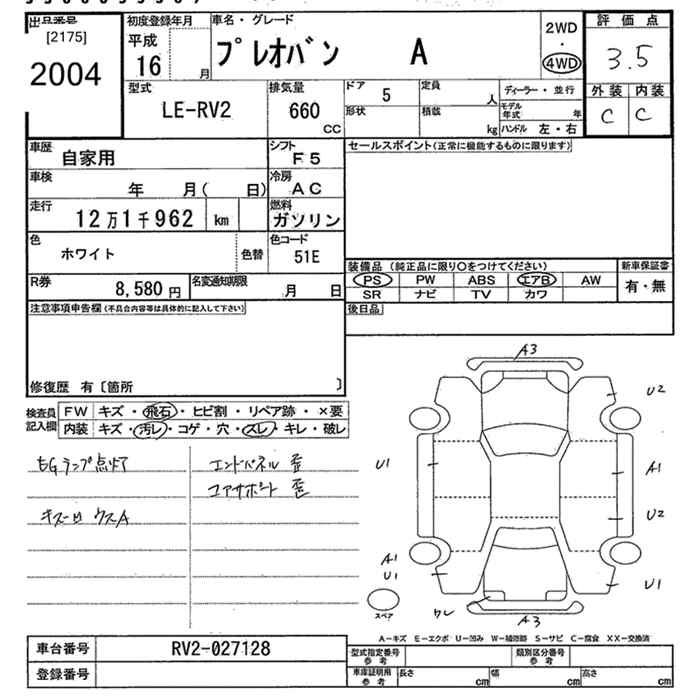 出品番号
[2175]
2004
初度登録年月
平成
16 月
車名・グレード
プレオバン A
2WD
・
4WD
評価点
3.5
外装 内装
C C
型式
LE-RV2
排気量
660
CC
ドア
5
定員
人
形状
積載
kg
ディーラー・並行
モデル年式 年
ハンドル 左・右
車歴
自家用
シフト
F5
車検
年 月( 日)
冷房
AC
走行
12万1千962 km
燃料
ガソリン
色
ホワイト
色替
色コード
51E
R券
8,580 円
名変通知期限
月 日
セールスポイント(正常に機能するものに限ります)
装備品 (純正品に限り〇をつけてください)
新車保証書
PS PW ABS エアB AW
有・無
SR ナビ TV カワ
後日品
注意事項申告欄(不具合内容等は具体的に記入して下さい)
修復歴 有〔箇所 〕
検査員
記入欄
FW キズ・飛石・ヒビ割・リペア跡・×要
内装 キズ・汚レ・コゲ・穴・スレ・キレ・破レ
EGランプ点灯
エンドパネル 歪
コアサポート 歪
キズ凹 ウスA
A3
U2
U1
A1
U2
A1
U1
U1
ワレ
A3
スペア
A-キズ E-エクボ U-凹み W-補修跡 S-サビ C-腐食 XX-交換済
車台番号
RV2-027128
登録番号
型式指定番号
参考
類別区分番号
参考
車庫証明用
参考
長さ cm
幅 cm
高さ cm